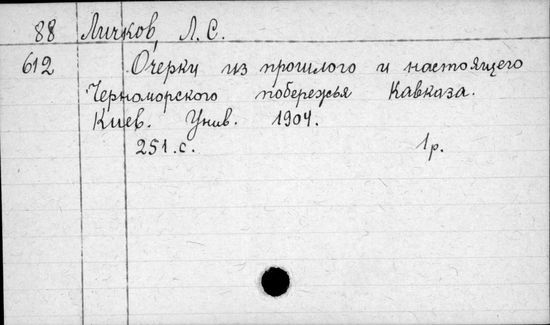 88 Личков, Л. С.
612 Очерки из прошлого и настоящего
Черноморского побережья Кавказа.
Киев. Унив. 1904.
251 с. 1 р.